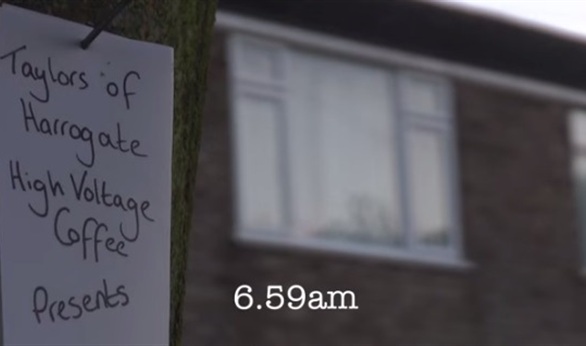 Taylors of
Harrogate
High Voltage
Coffee
Presents
6.59am